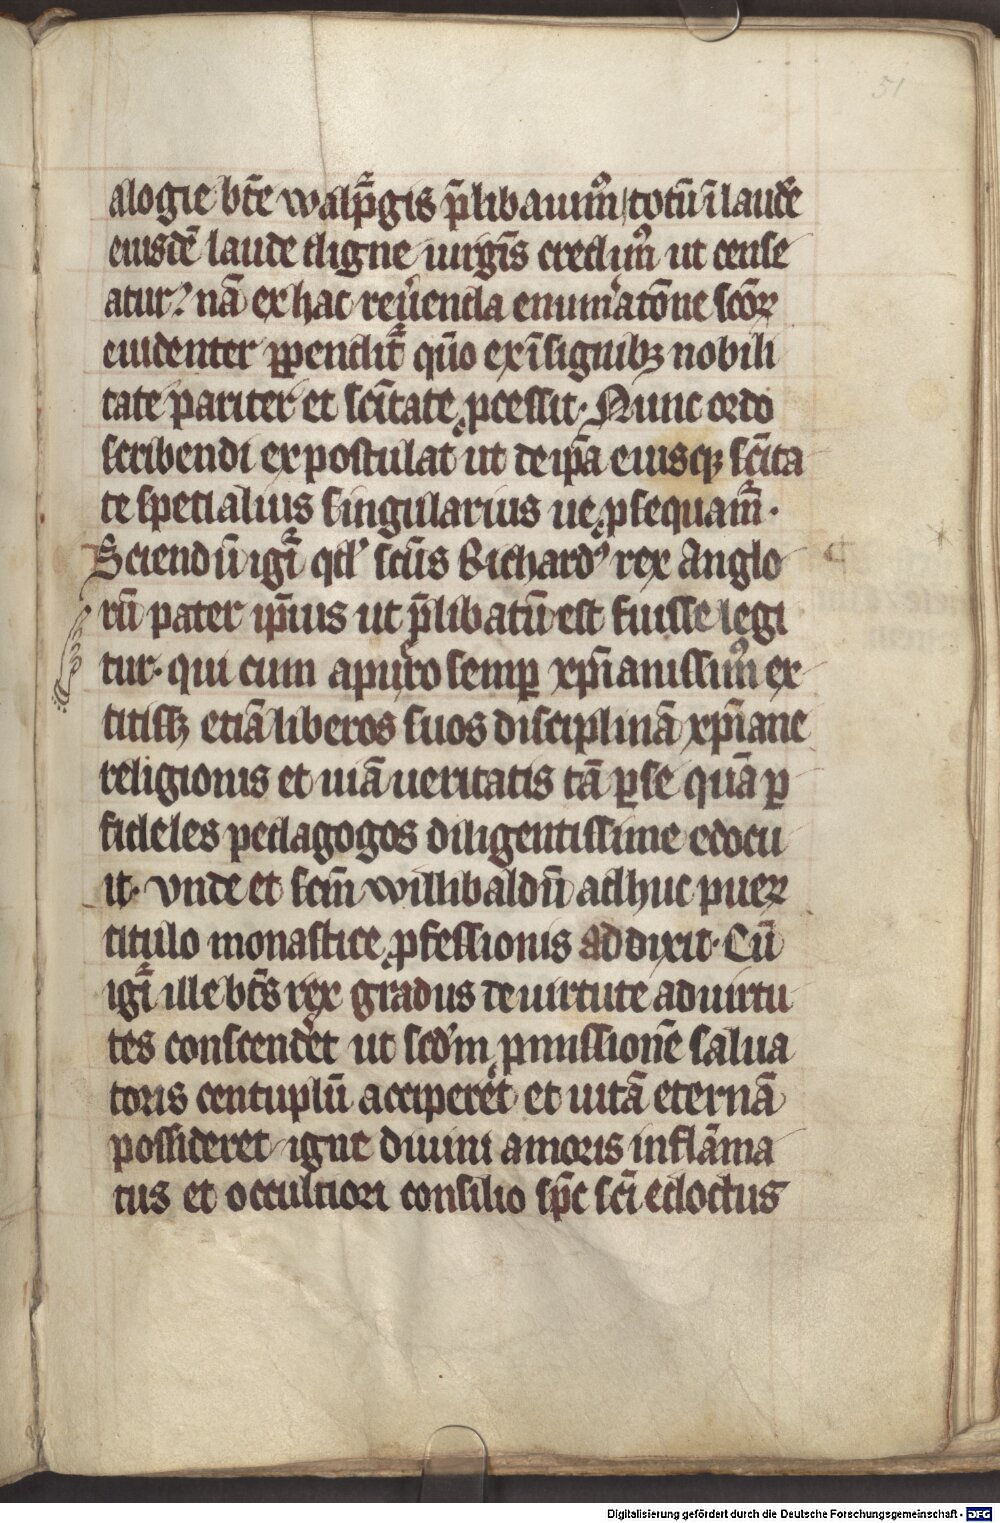 51
alogie bt̄e walpͣgis p̄libauimꝰ totū ī laudē
eiusdē laude digne uirgīs credimꝰ ut cense
atur? nā ex hac reu̾enda enum̾atōne scōꝝ
euidenter ꝑpendit̄ quō ex īsignibꝫ nobili
tate pariter et scītate ꝓcessit. Nunc ordo
scribendi expostulat ut de ip̄a eiusqꝫ scīta
te specialius singularius ue ꝓsequam̄.
Sciendū igı̄ qd' scūs Richardꝰ rex Anglo
rū pater ip̄ius ut p̄libatū est fuisse legi
tur. qui cum a puͦro semꝑ xp̄ianissimꝰ ex
titissꝫ etiā liberos suos disciplinā xp̄iane
religionis et uiā ueritatis tā ꝑ se quā ꝑ
fideles pedagogos diligentissime edocu
it. vnde et scm̄ willibaldū adhuc pueꝝ
titulo monastice ꝓfessionis addixit. Cū
igı̄ ille bt̄s rex gradus de uirtute ad uirtu
tes conscender̄et ut scd'm ꝓmissionē salua
toris centuplū acciper̄et et uitā eternā
possideret igne diuini amoris inflāma
tus et occultiori consilio sp̄c scī edoctus
Digitalisierung gefördert durch die Deutsche Forschungsgemeinschaft - DFG